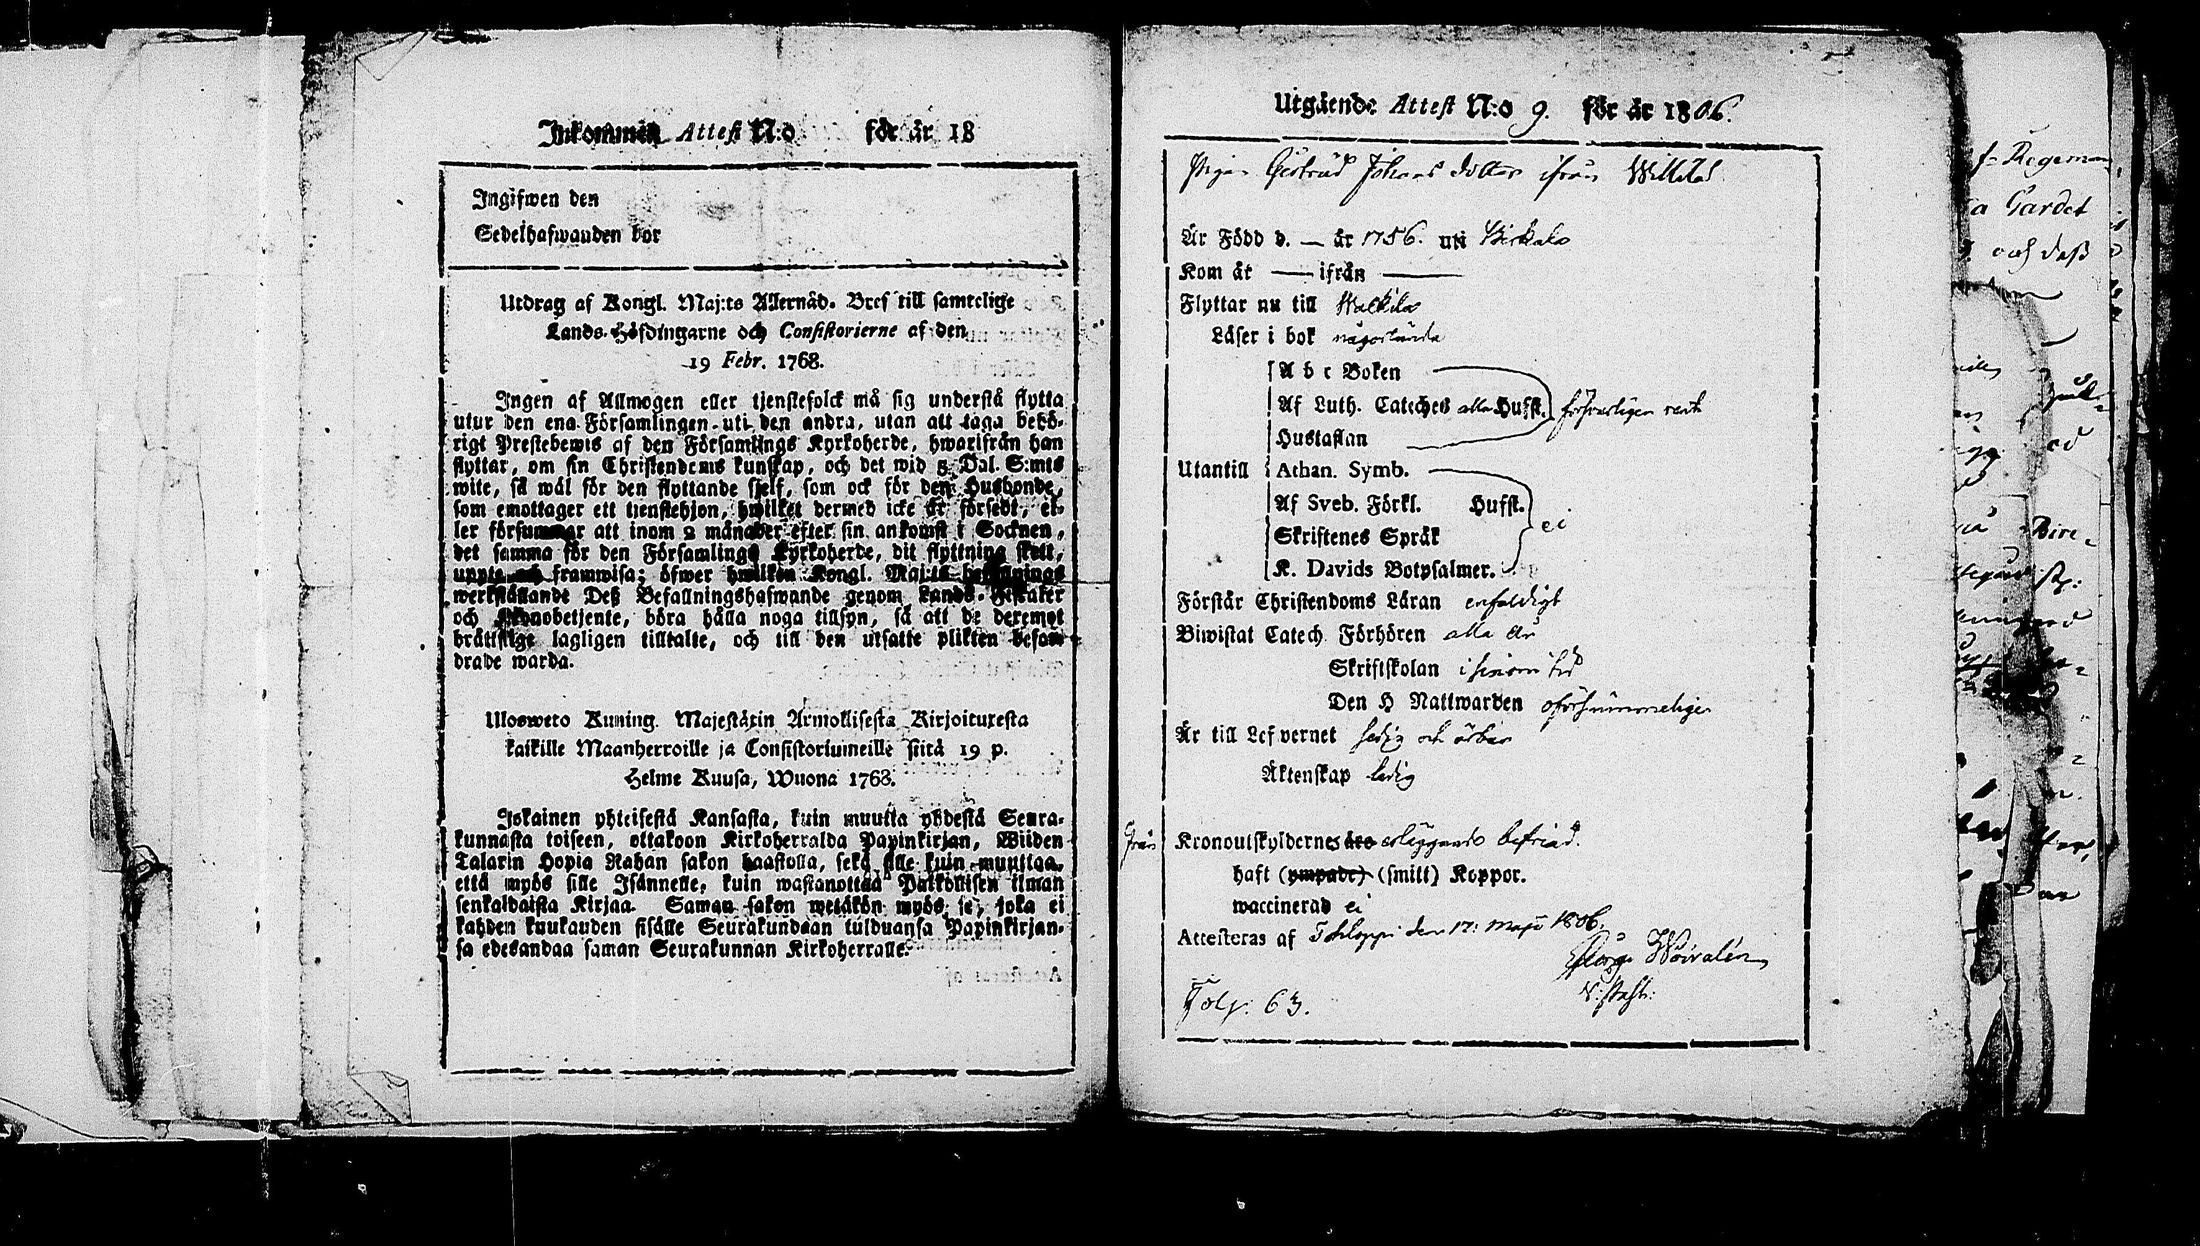 Inkommen Attest N:o för år 18
Ingifwen den
Sedelhafwanden bor
Utdrag af Kongl. Maj:ts Allernåd. Bref till samtelige
Lands-Höfdingarne och Consistorierne af den
19 Febr. 1768.
Ingen af Allmogen eller tjenstefolck må sig understå flytta
utur den ena Församlingen uti den andra, utan att taga behö-
rigt Prestebewis af den Församlings Kyrkoherde, hwarifrån han
flyttar, om sin Christendoms kunskap, och det wid 5 Dal. S:mts
wite, så wäl för den flyttande sjelf, som ock för den Husbonde,
som emottager ett tjenstehjon, hwilket dermed icke är försedt, el-
ler försummar att inom 2 månader efter sin ankomst i Socknen,
det samma för den Församlings Kyrkoherde, dit flyttning skett,
uppte och framwisa; öfwer hwilken Kongl. Maj:ts befallnings
werkställande Deß Befallningshafwande genom Lands-Fiskaler
och Kronobetjente, böra hålla noga tillsyn, så att de deremot
bråttslige lagligen tilltalte, och till den utsatte plikten befor-
drade warda.
Ulosweto Kuning. Majestätin Armollisesta Kirjoituxesta
kaikille Maanherroille ja Consistoriumeille siitä 19 p.
Helme Kuusa, Wuona 1768.
Jokainen yhteisestä Kansasta, kuin muutta yhdestä Seura-
kunnasta toiseen, ottakoon Kirkoherralda Papinkirjan, Wiiden
Talarin Hopia Rahan sakon haastolla, sekä sille kuin muuttaa,
että myös sille Isännelle, kuin wastanottaa Palkollisen ilman
senkaldaista Kirjaa. Saman sakon wetäkön myös se, joka ei
kahden kuukauden sisälle Seurakundaan tulduansa Papinkirjan-
sa edesandaa saman Seurakunnan Kirkoherralle.
Utgående Attest N:o 9. för år 1806.
Pigan Gertrud Johans dotter ifrån
Är Född d. — år 1756. uti Birkala
Kom år — ifrån —
Flyttar nu till
Läser i bok någorlunda
A b c Boken
Af Luth. Cateches alla Hufst. försvarligen
Hustaflan
Utantill Athan. Symb.
Af Sveb. Förkl. Hufst. ei
Skriftenes Språk
K. Davids Botpsalmer.
Förstår Christendoms Läran enfaldigt
Biwistat Catech. Förhören alla år
Skriftskolan i sinom tid
Den H Nattwarden oförsummeligen
Är till Lefvernet sedig och ärbar
Äktenskap ledig
från Kronoutskyldernes äro erläggande befriad.
haft (ympade) (smitt) Koppor.
waccinerad ei
Attesteras af Tohloppi den 17: Maji 1806.
Georg Woivalén
V. past:
Fol. 63.